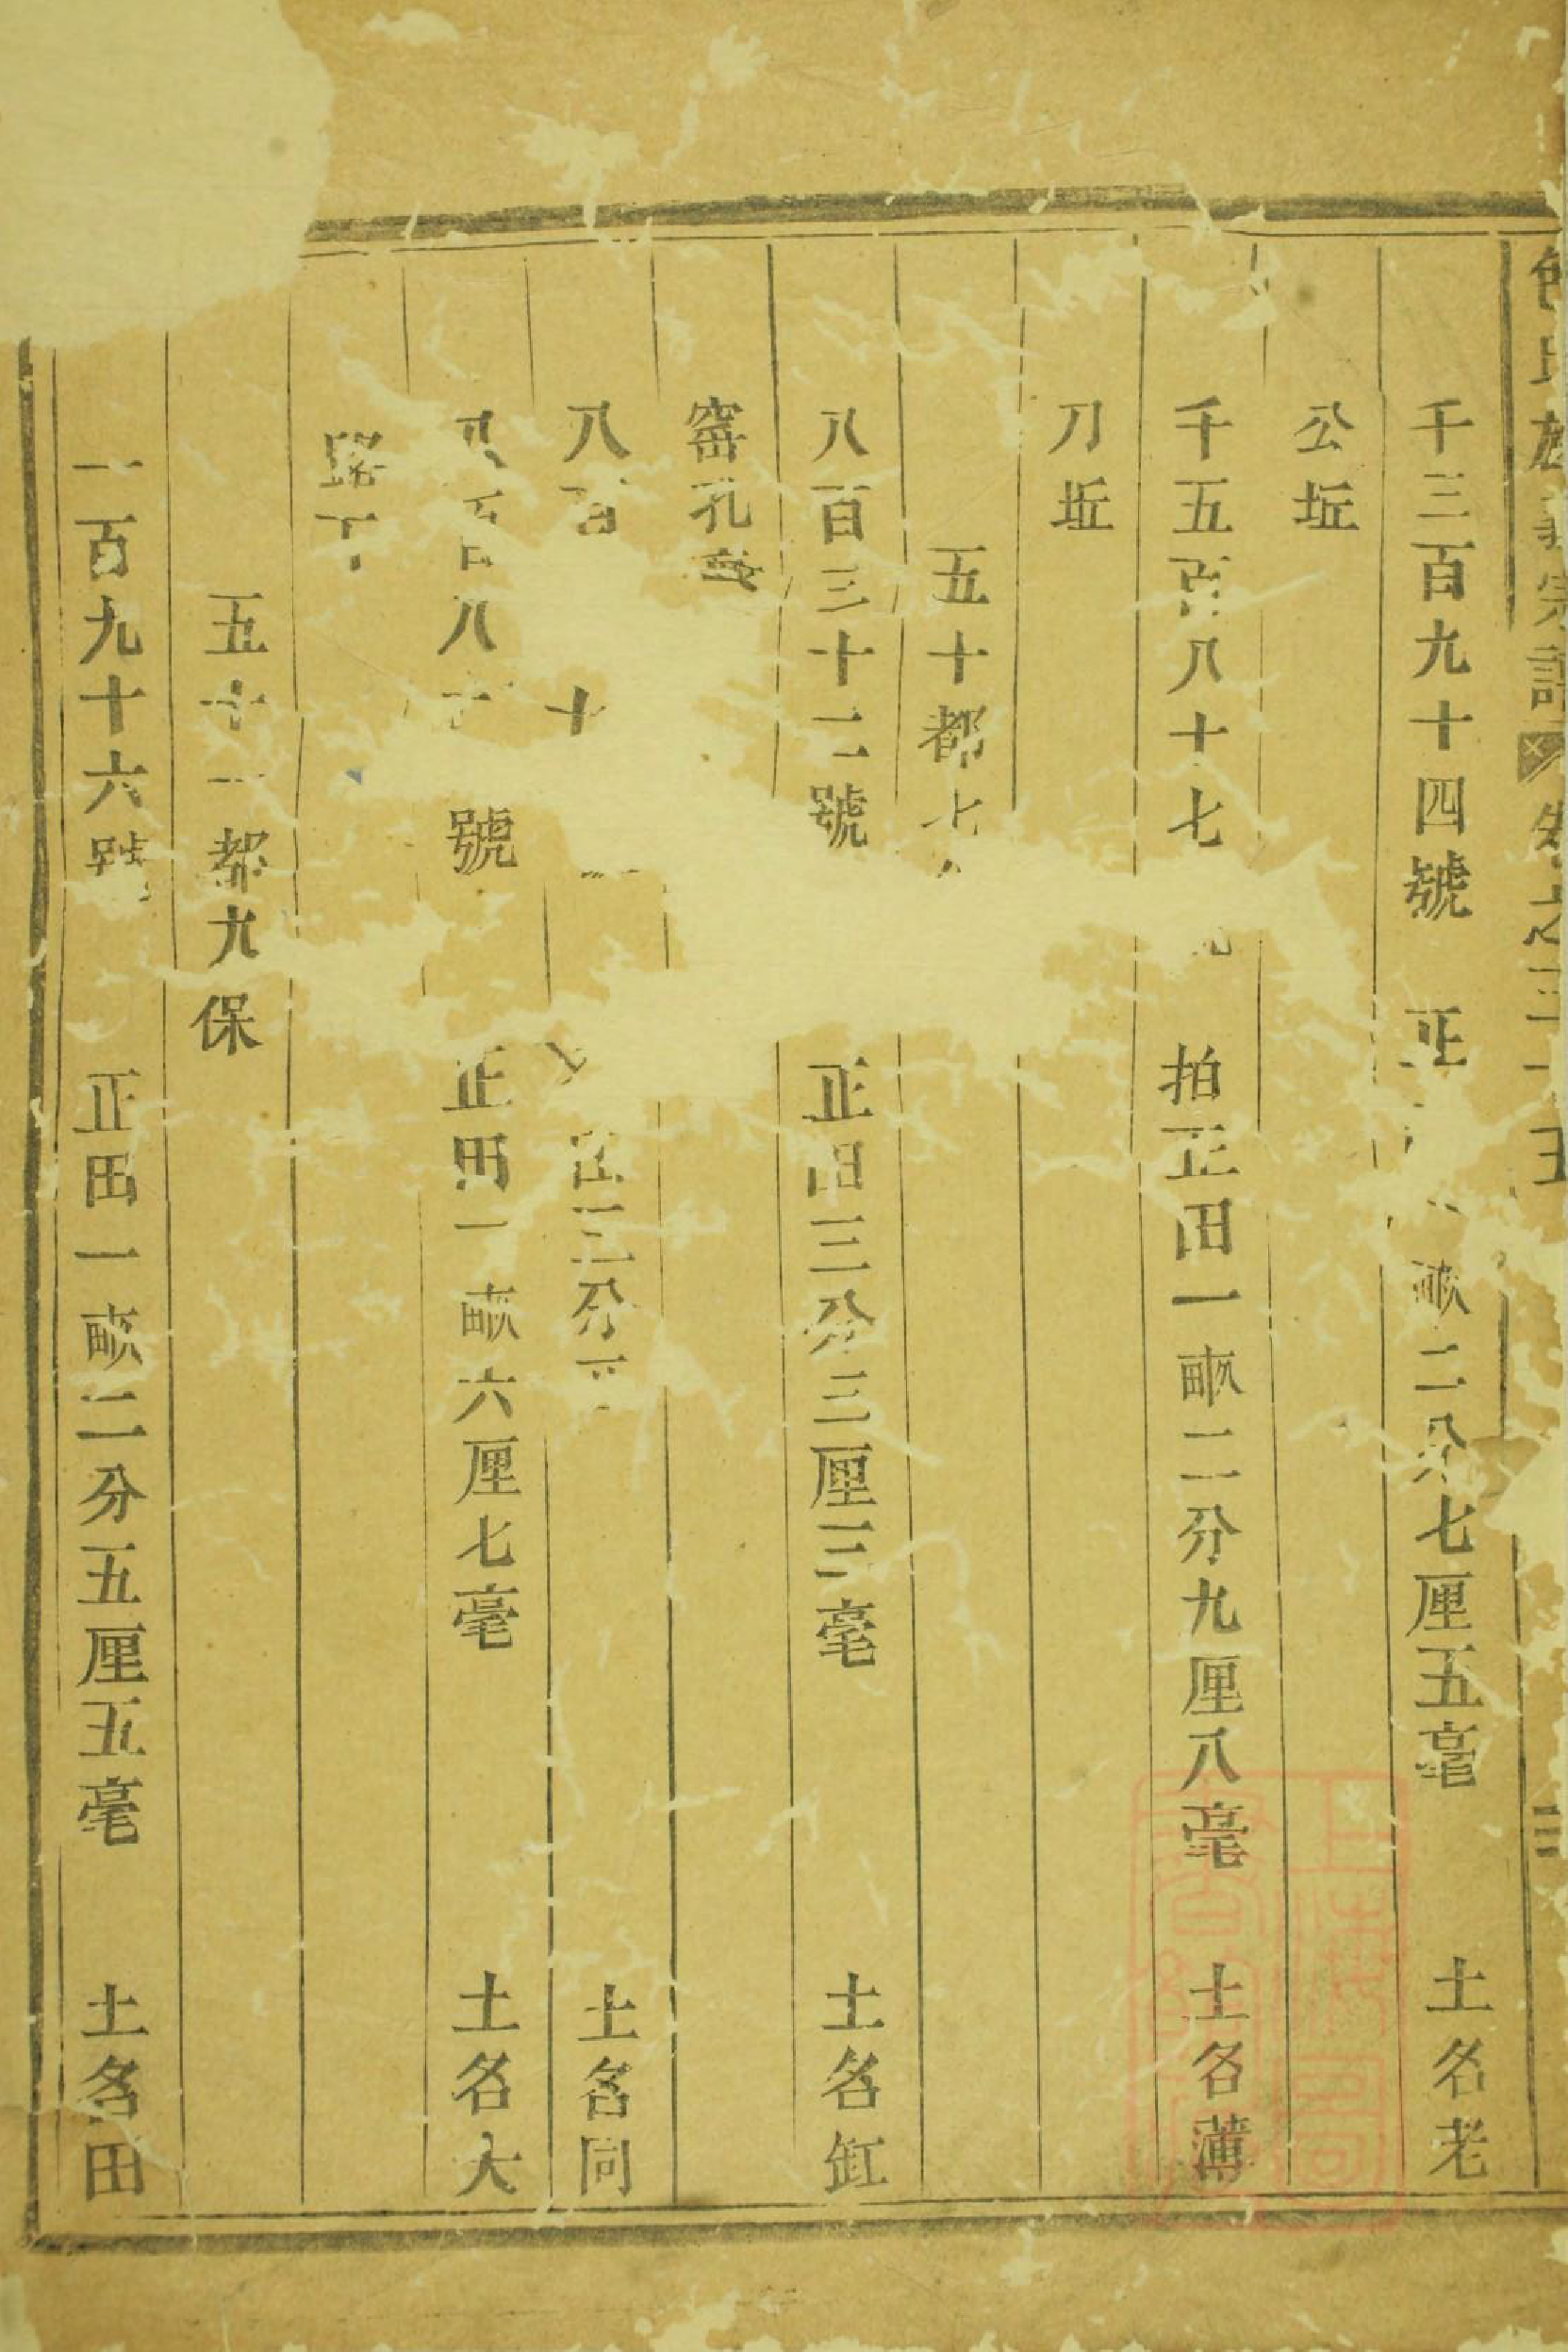 氏族義宗譜 卷之三十五 三
千三百九十四號 正 畝二分七厘五毫 土名老
公坵
千五百八十七 拍正田一畝二分九厘八毫 土名薄
刀坵
五十都七
八百三十二號 正田三分三厘三毫 土名缸
窑孔
八百 十 三分 土名同
八百八十 號 正田一畝六厘七毫 土名大
路下
五十一都九保
一百九十六號 正田一畝二分五厘五毫 土名田
上海圖書館藏